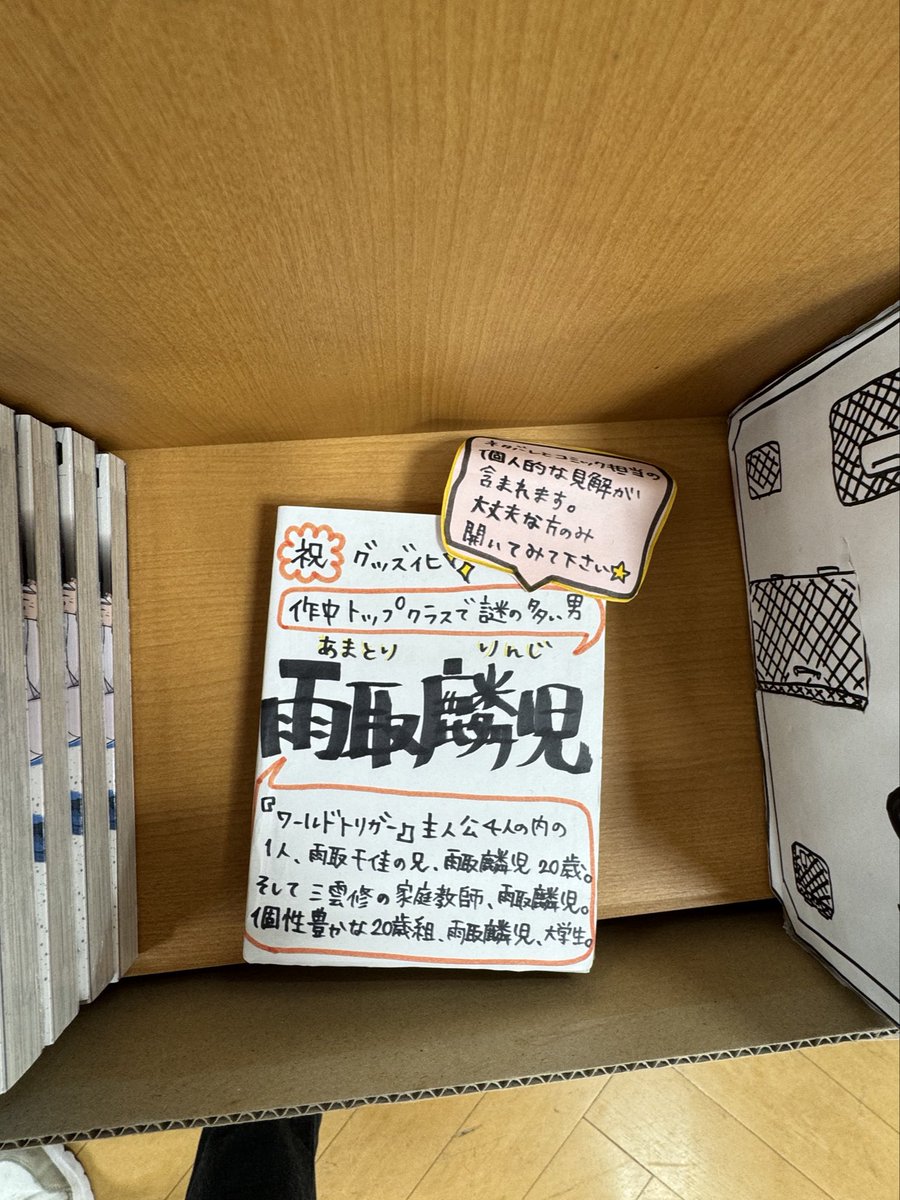 ネタバレとコミック担当の
個人的な見解が
含まれます。
大丈夫な方のみ
開いてみて下さい☆
祝 グッズ化
作中トップクラスで謎の多い男
あまとり りんじ
雨取麟児
『ワールドトリガー』主人公4人の内の
1人、雨取千佳の兄、雨取麟児20歳。
そして三雲修の家庭教師、雨取麟児。
個性豊かな20歳組、雨取麟児、大学生。